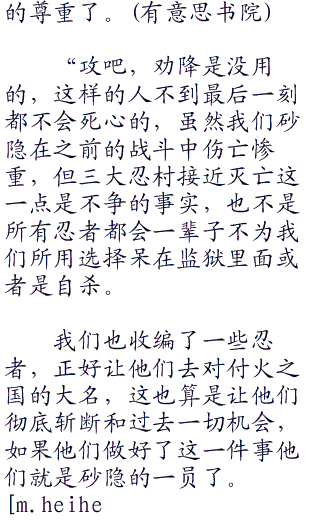 的尊重了。(有意思书院)
“攻吧，劝降是没用
的，这样的人不到最后一刻
都不会死心的，虽然我们砂
隐在之前的战斗中伤亡惨
重，但三大忍村接近灭亡这
一点是不争的事实，也不是
所有忍者都会一辈子不为我
们所用选择呆在监狱里面或
者是自杀。
我们也收编了一些忍
者，正好让他们去对付火之
国的大名，这也算是让他们
彻底斩断和过去一切机会，
如果他们做好了这一件事他
们就是砂隐的一员了。
[m.heihe